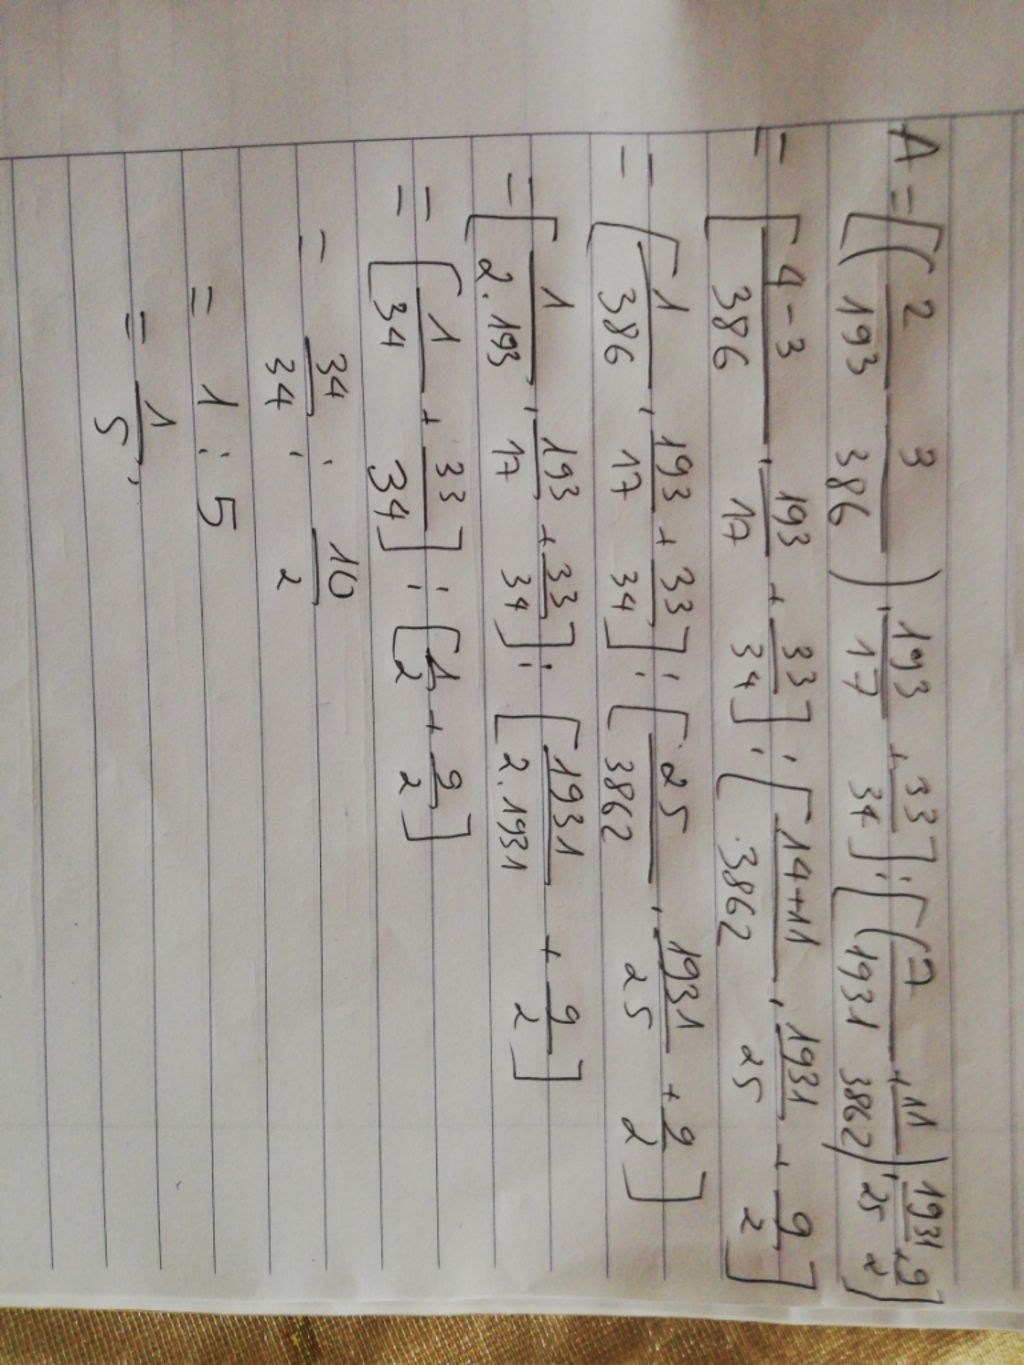 A = [(2/193 - 3/386) . 193/17 + 33/34] : [(7/1931 + 11/3862) . 1931/25 + 9/2]
= [4-3/386 . 193/17 + 33/34] : [14+11/3862 . 1931/25 + 9/2]
= [1/386 . 193/17 + 33/34] : [25/3862 . 1931/25 + 9/2]
= [1/2.193 . 193/17 + 33/34] : [1931/2.1931 + 9/2]
= [1/34 + 33/34] : [1/2 + 9/2]
= 34/34 : 10/2
= 1 : 5
= 1/5,